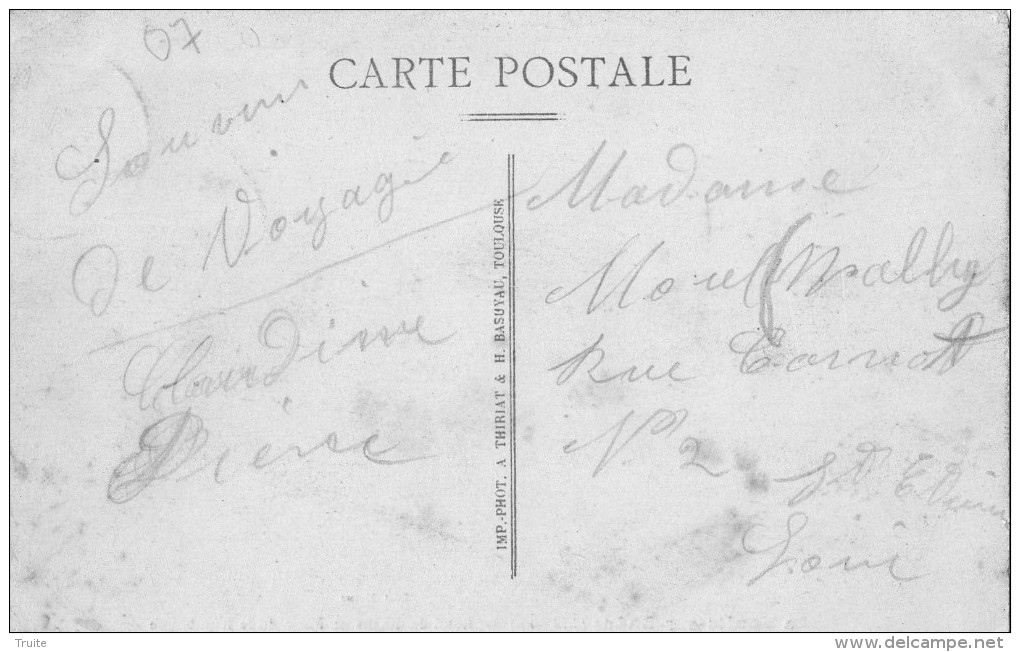 07
CARTE POSTALE
Souvenir
de Voyage
Claudine
Pierre
IMP.-PHOT. A THIRIAT & H. BASUYAU, TOULOUSE
Madame
Morel
Rue Carnot
No 2
St Etienne
Loire
Truite
www.delcampe.net